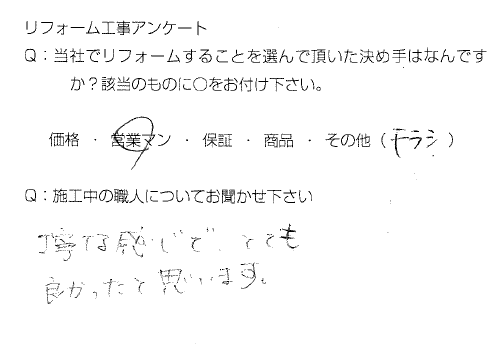 リフォーム工事アンケート
Q：当社でリフォームすることを選んで頂いた決め手はなんです
か？該当のものに○をお付け下さい。
価格 ・ 営業マン ・ 保証 ・ 商品 ・ その他（チラシ）
Q：施工中の職人についてお聞かせ下さい
丁寧な感じで、とても
良かったと思います。